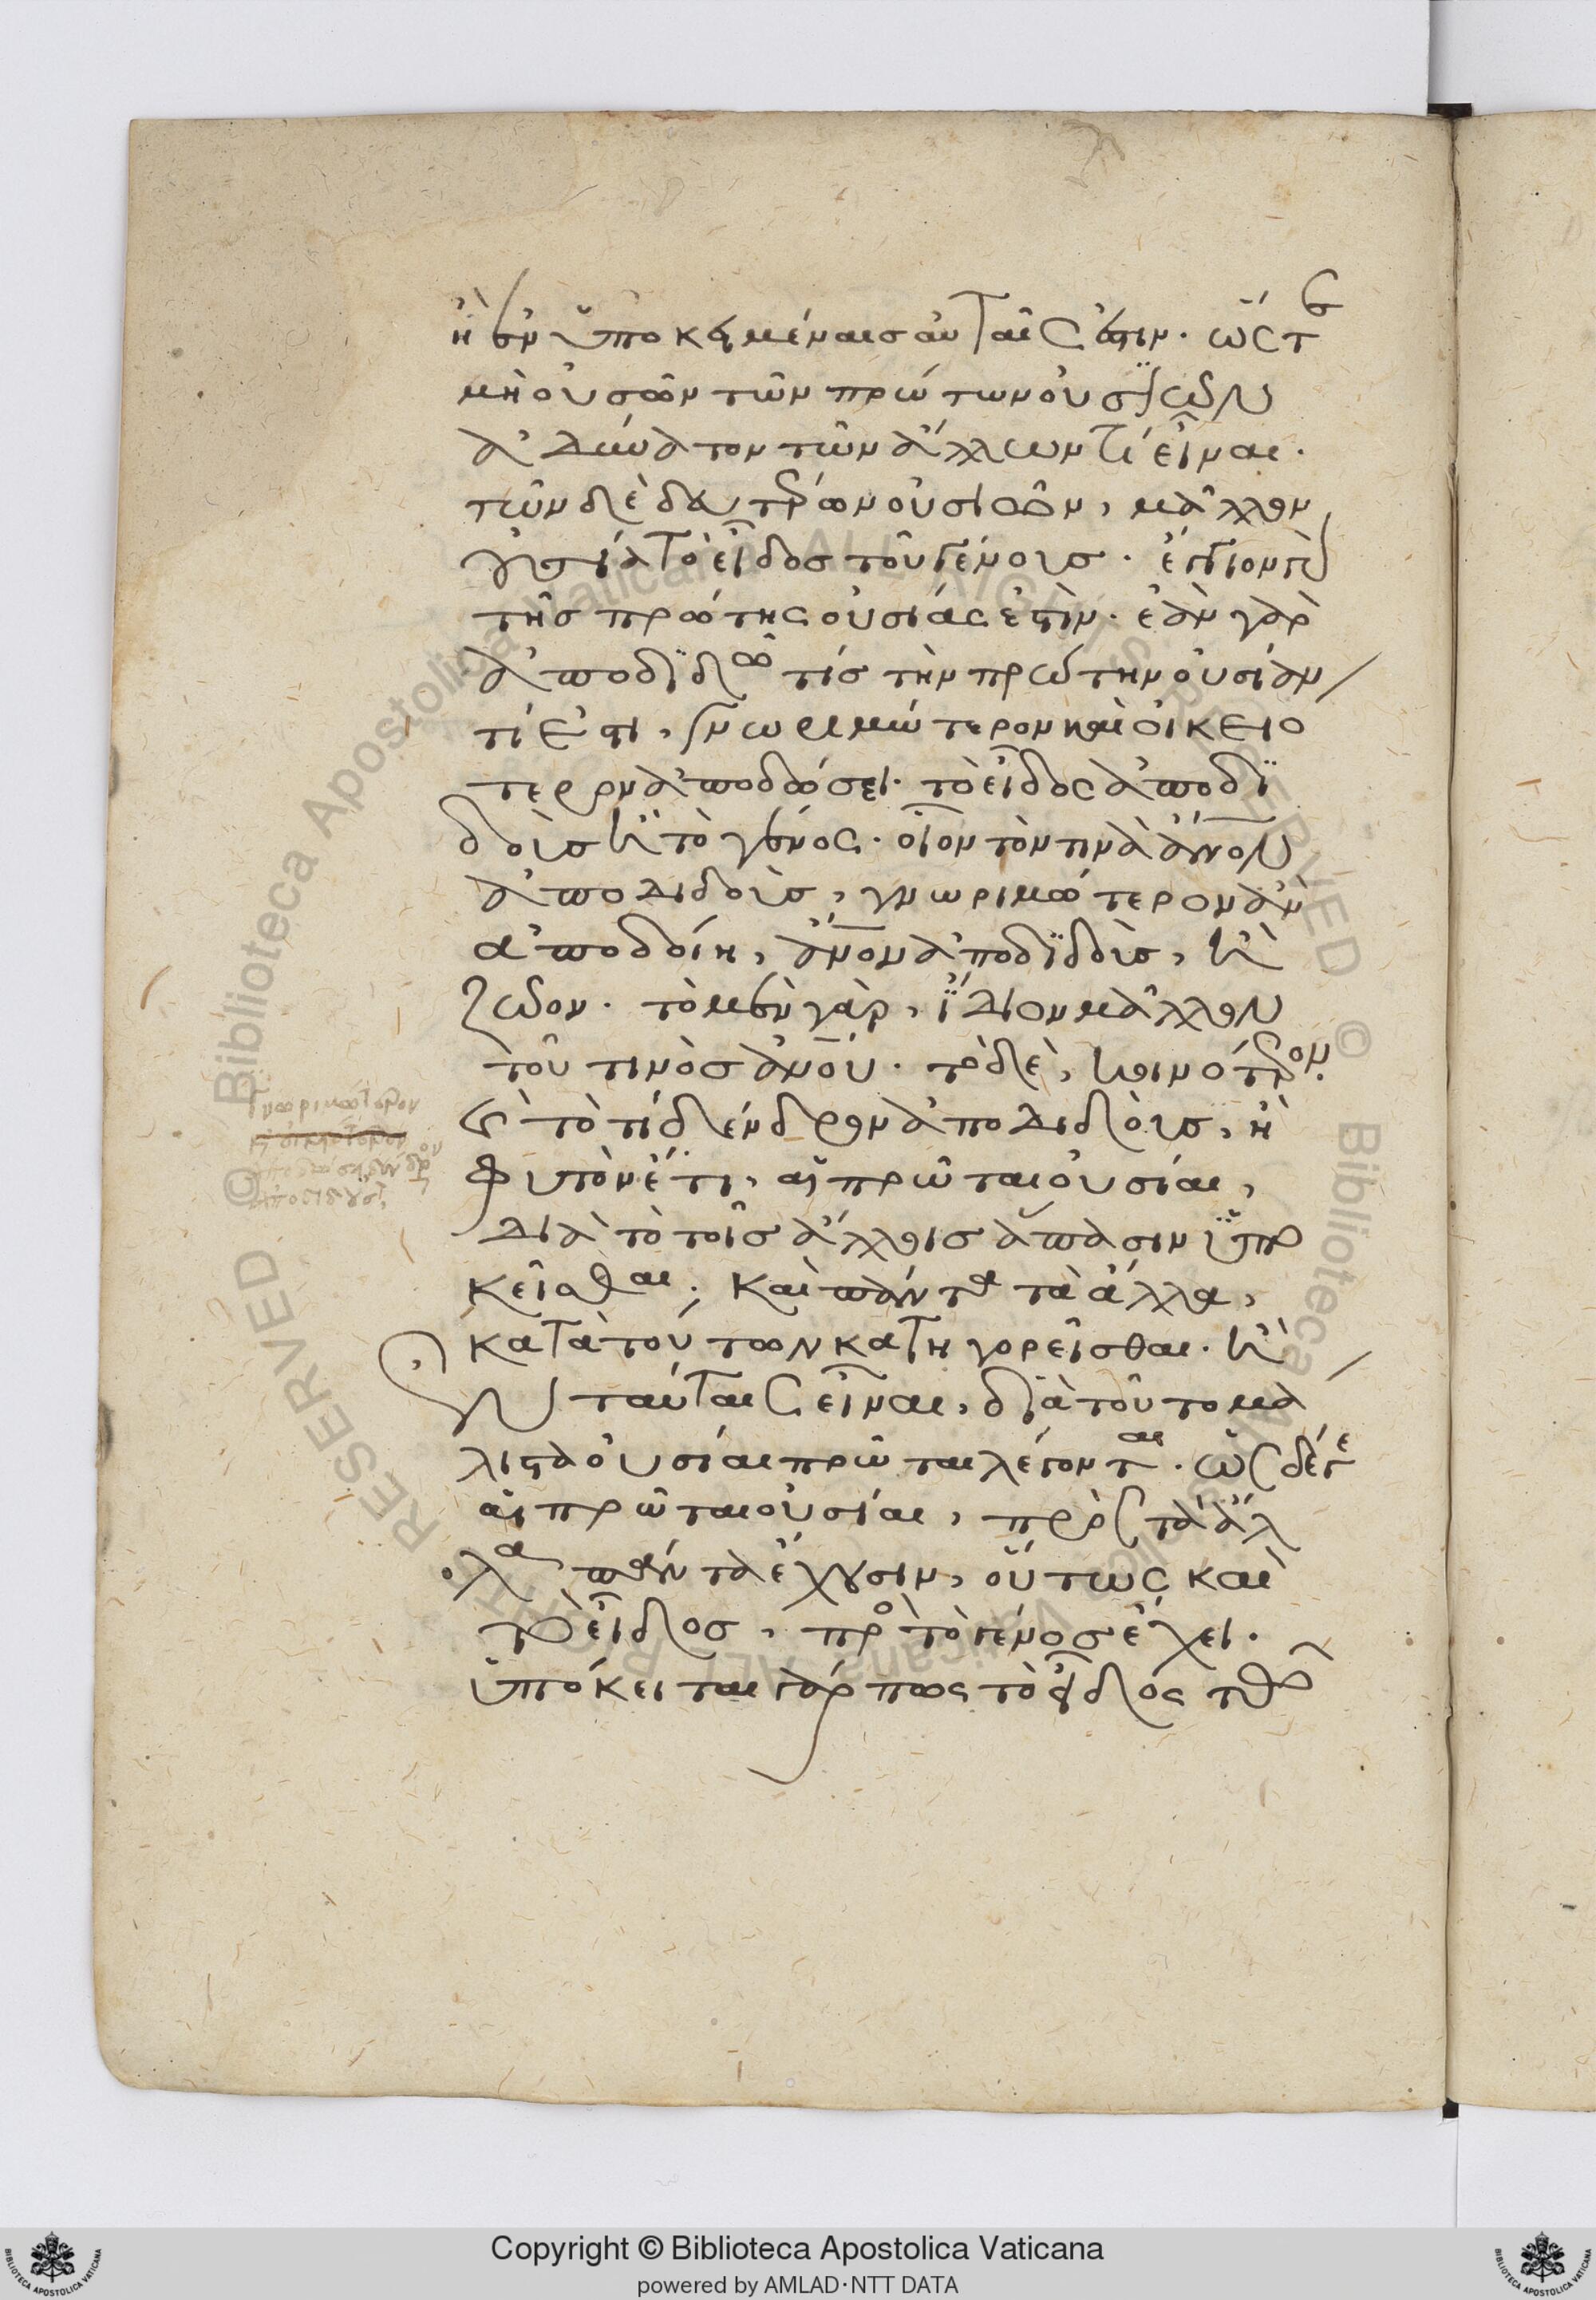 ἢ ἐν ὑποκειμέναις αὐταῖς ἐστιν. ὥστε
μὴ οὐσῶν τῶν πρώτων οὐσϊῶν
ἀδύνατον τῶν ἄλλων τί εἶναι.
τῶν δὲ δευτέρων οὐσιῶν, μᾶλλον
οὐσία τὸ εἶδος τοῦ γένους. ἔγγιον γὰρ
τῆς πρώτης οὐσίας ἐστὶν. ἐὰν γὰρ
ἀποδϊδῶ τίς τὴν πρώτην οὐσίαν
τί ἐστι, γνωριμώτερον καὶ οἰκειο
τερον ἀποδώσει. τὸ εἶδος ἀποδϊ
δοὺς ἢ τὸ γένος. οἷον τὸν τινὰ ἄνον
ἀποδιδοὺς, γνωριμώτερον ἂν
ἀποδοίη, ἄνον ἀποδϊδοὺς, ἢ
ζῶον. τὸ μὲν γὰρ, ἴδιον μᾶλλον
τοῦ τινὸς ἀνου. τὸ δὲ, κοινότερον.
καὶ τὸ τὶ δένδρον ἀποδιδοὺς, ἢ
φυτὸν ἔτι, αἱ πρῶται οὐσίαι,
διὰ τὸ τοῖς ἄλλοις ἅπασιν ὑπο
κεῖσθαι. καὶ πάντα τὰ ἄλλα,
κατὰ τούτων κατηγορεῖσθαι. ἢ
ἐν ταύταις εἶναι, διὰ τοῦτο μα
λιστα οὐσίαι πρῶται λέγονται. ὡς δέ γε
αἱ πρῶται οὐσίαι, πρὸς τὰ ἄλ
λα πάντα ἔχουσιν, οὕτως καὶ
τὸ εἶδος, πρὸς τὸ γένος ἔχει.
ὑπόκειται γάρ πως τὸ εἶδος τῶ
γνωριμώτερον
Copyright © Biblioteca Apostolica Vaticana
powered by AMLAD·NTT DATA